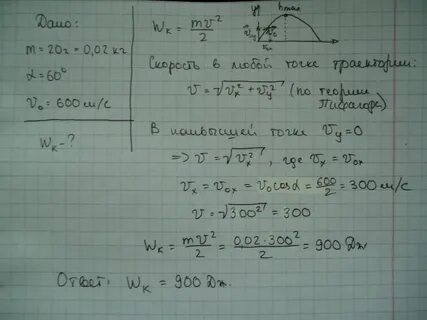 Дано:
m = 20г = 0,02 кг
α = 60°
v₀ = 600 м/с
Wк - ?
Wк = mv²/2
y hmax
vy v₀
vx
Скорость в любой точке траектории:
v = √(vx² + vy²) (по теории Пифагора)
В наивысшей точке vy = 0
⇒ v = √(vx²), где vx = v₀x
vx = v₀x = v₀ cosα = 600/2 = 300 м/с
v = √(300²) = 300
Wк = mv²/2 = 0,02·300²/2 = 900 Дж
Ответ: Wк = 900 Дж.